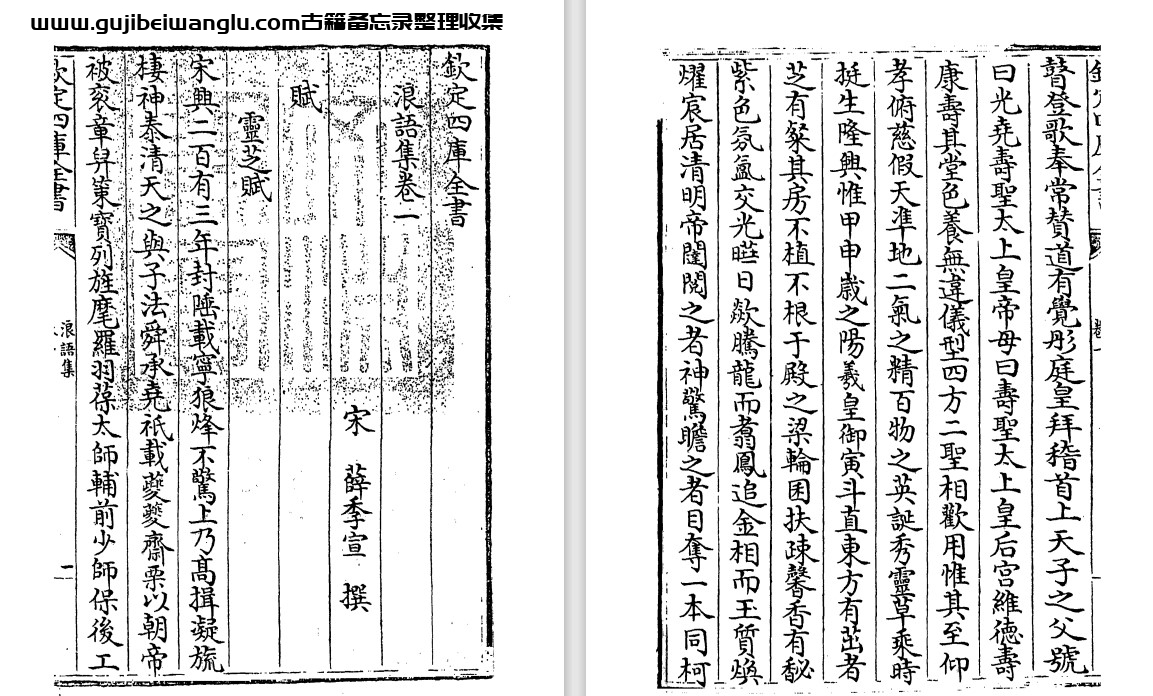 www.gujibeiwanglu.com古籍备忘录整理收集
欽定四庫全書
浪語集卷一
宋 薛季宣 撰
賦
靈芝賦
宋興二百有三年封陲載寧狼烽不驚上乃髙揖凝旒
棲神泰清天之與子法舜承堯祇載夔夔齋栗以朝帝
被衮章舁策寶列旌麾羅羽葆太師輔前少師保後工
欽定四庫全書
浪語集
二
瞽登歌奉常賛道有覺彤庭皇拜稽首上天子之父號
曰光堯壽聖太上皇帝母曰壽聖太上皇后宫維徳壽
康壽其堂色養無違儀型四方二聖相歡用惟其至仰
孝俯慈假天凖地二氣之精百物之英誕秀靈草乘時
挺生隆興惟甲申嵗之陽羲皇御寅斗直東方有茁者
芝有粲其房不植不根于殿之梁輪囷扶疎馨香有馝
紫色氛氲交光暎日歘騰龍而翥鳳追金相而玉質煥
燿宸居清明帝闥閲之者神驚瞻之者目奪一本同柯